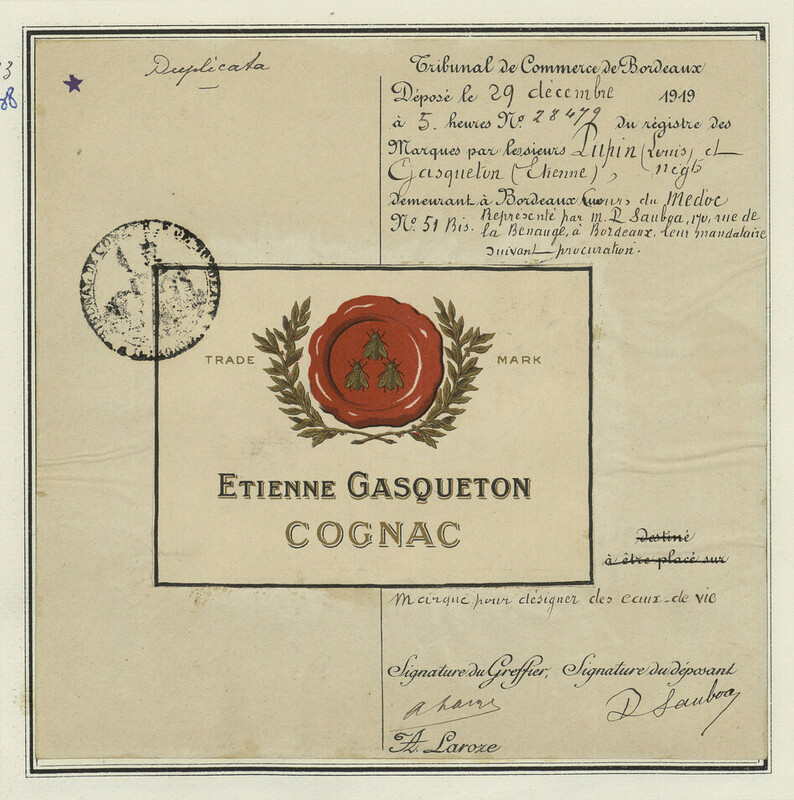 Duplicata
Tribunal de Commerce de Bordeaux
Déposé le 29 décembre 1919
à 5 heures No. 28479 du régistre des
Marques par les sieurs Pupin (Louis) et
Gasqueton (Etienne), négts
demeurant à Bordeaux cours du Medoc
No. 51 Bis. Représenté par m. D Sauboa, 170, rue de
la Benauge, à Bordeaux, leur mandataire
suivant procuration.
TRADE MARK
ETIENNE GASQUETON
COGNAC
Destiné
à être placé sur
Marque pour désigner des eaux-de vie
Signature du Greffier, Signature du déposant
D Sauboa
A. Laroze